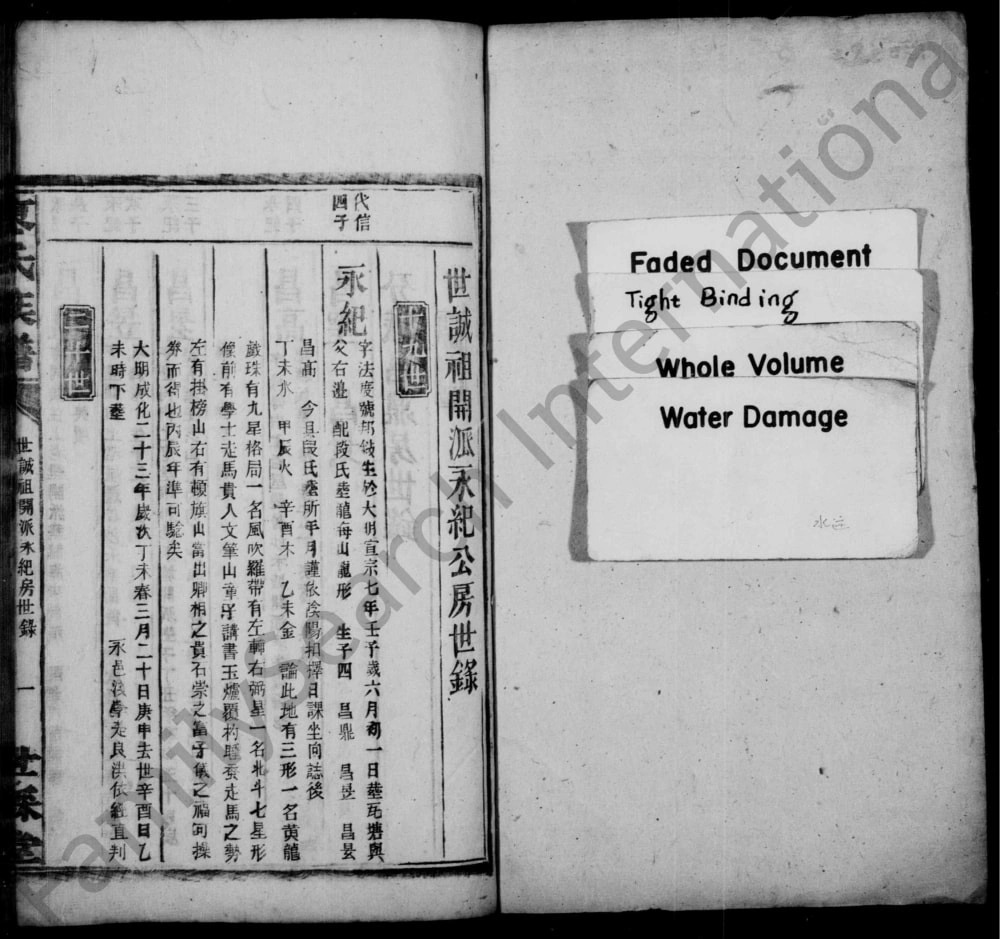 代信
四子
世誠祖開派永紀公房世錄
永紀
字法度號邦 生於大明宣宗七年壬子歲六月初一日葬瓦塘與
父右邊 配段氏葬龍每山龍形 生子四 昌鼎 昌昱 昌旻
昌高 今具段氏葬所年月謹依陰陽相擇日課坐向誌後
丁未水 甲辰火 辛酉木 乙未金 論此地有三形一名黃龍
戲珠有九星格局一名風吹羅帶有左輔右弼星一名北斗七星形
僕前有學士走馬貴人文筆山 講書玉爐覆杓 走馬之勢
左有掛榜山右有頓旗山當出卿相之貴石崇之富子儀之福何操
券而得也丙辰年準可驗矣
大明成化二十三年歲次丁未春三月二十日庚申去世辛酉日乙
未時下葬 永邑後學 良洪依經直判
氏族譜
世誠祖開派永紀房世錄
一
堂
Faded Document
Tight Binding
Whole Volume
Water Damage
FamilySearch International